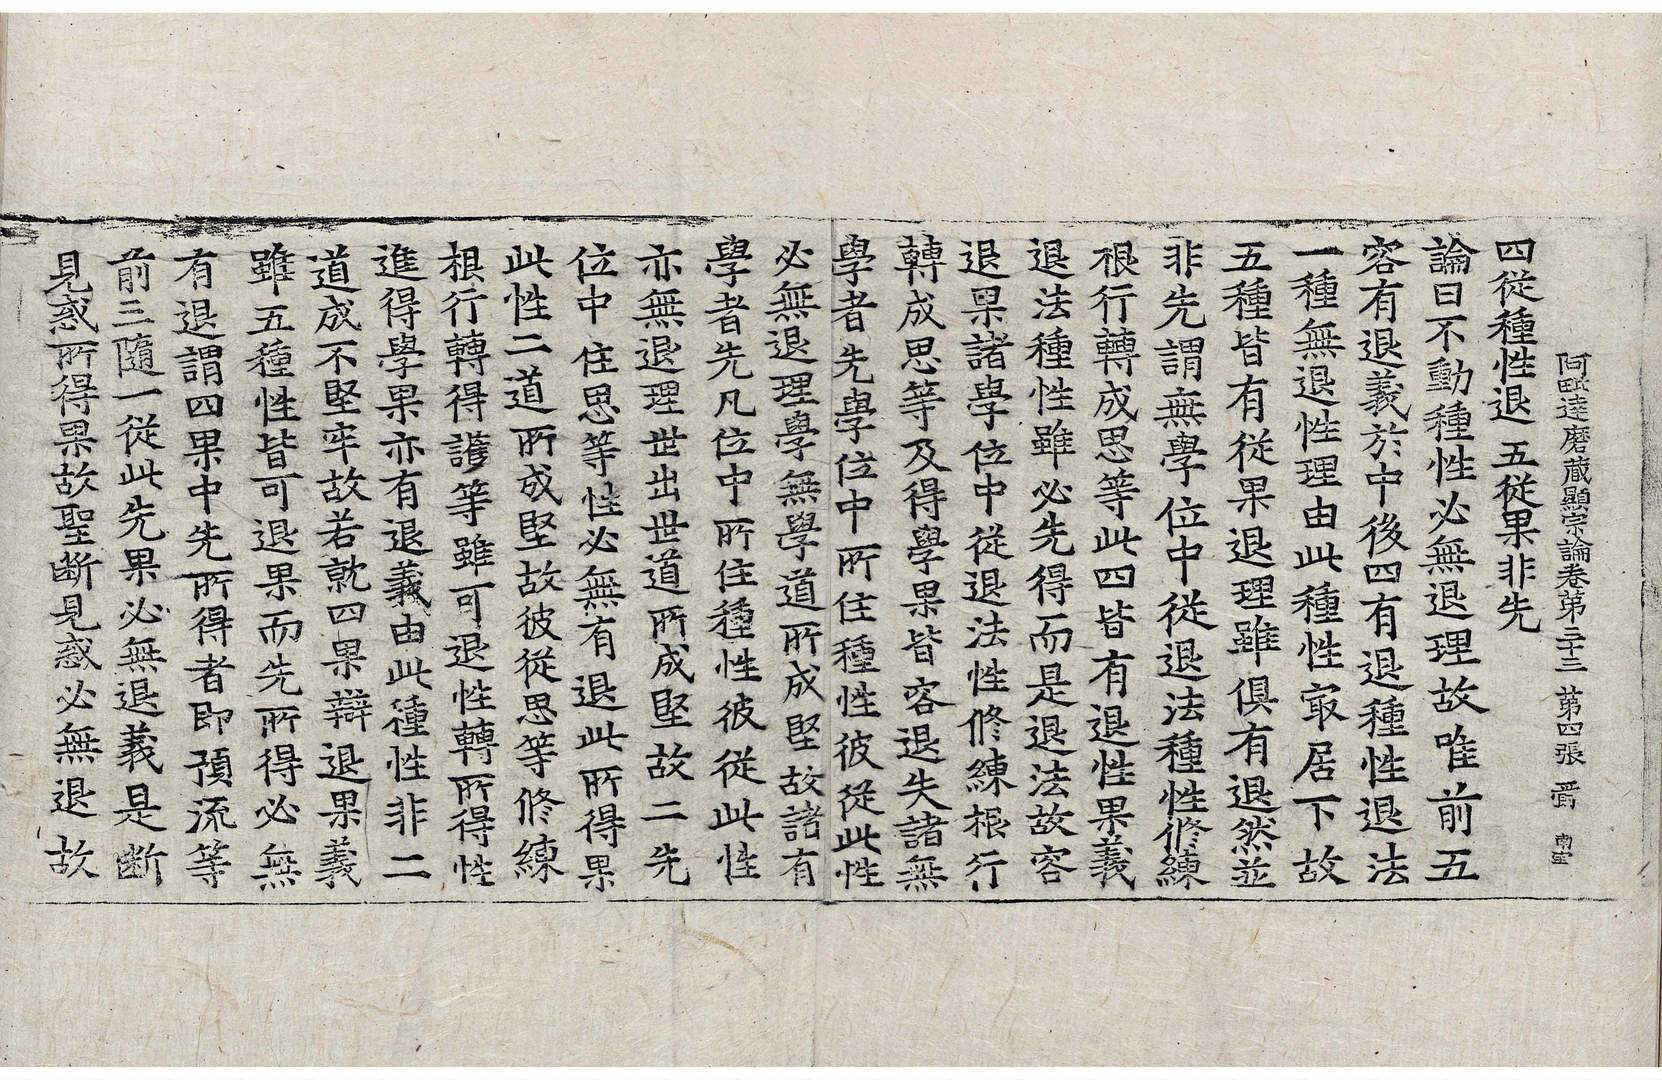 阿毗達磨藏顯宗論卷第三十三 第四張
四從種性退 五從果非先
論曰不動種性必無退理故唯前五
容有退義於中後四有退種性退法
一種無退性理由此種性㝡居下故
五種皆有從果退理雖俱有退然並
非先謂無學位中從退法種性修練
根行轉成思等此四皆有退性果義
退法種性雖必先得而是退法故容
退果諸學位中從退法性修練根行
轉成思等及得學果皆容退失諸無
學者先學位中所住種性彼從此性
必無退理學無學道所成堅故諸有
學者先凡位中所住種性彼從此性
亦無退理世出世道所成堅故二先
位中住思等性必無有退此所得果
此性二道所成堅故彼從思等修練
根行轉得護等雖可退性轉所得性
進得學果亦有退義由此種性非二
道成不堅牢故若就四果辯退果義
雖五種性皆可退果而先所得必無
有退謂四果中先所得者即預流等
前三隨一從此先果必無退義是斷
見惑所得果故聖斷見惑必無退故